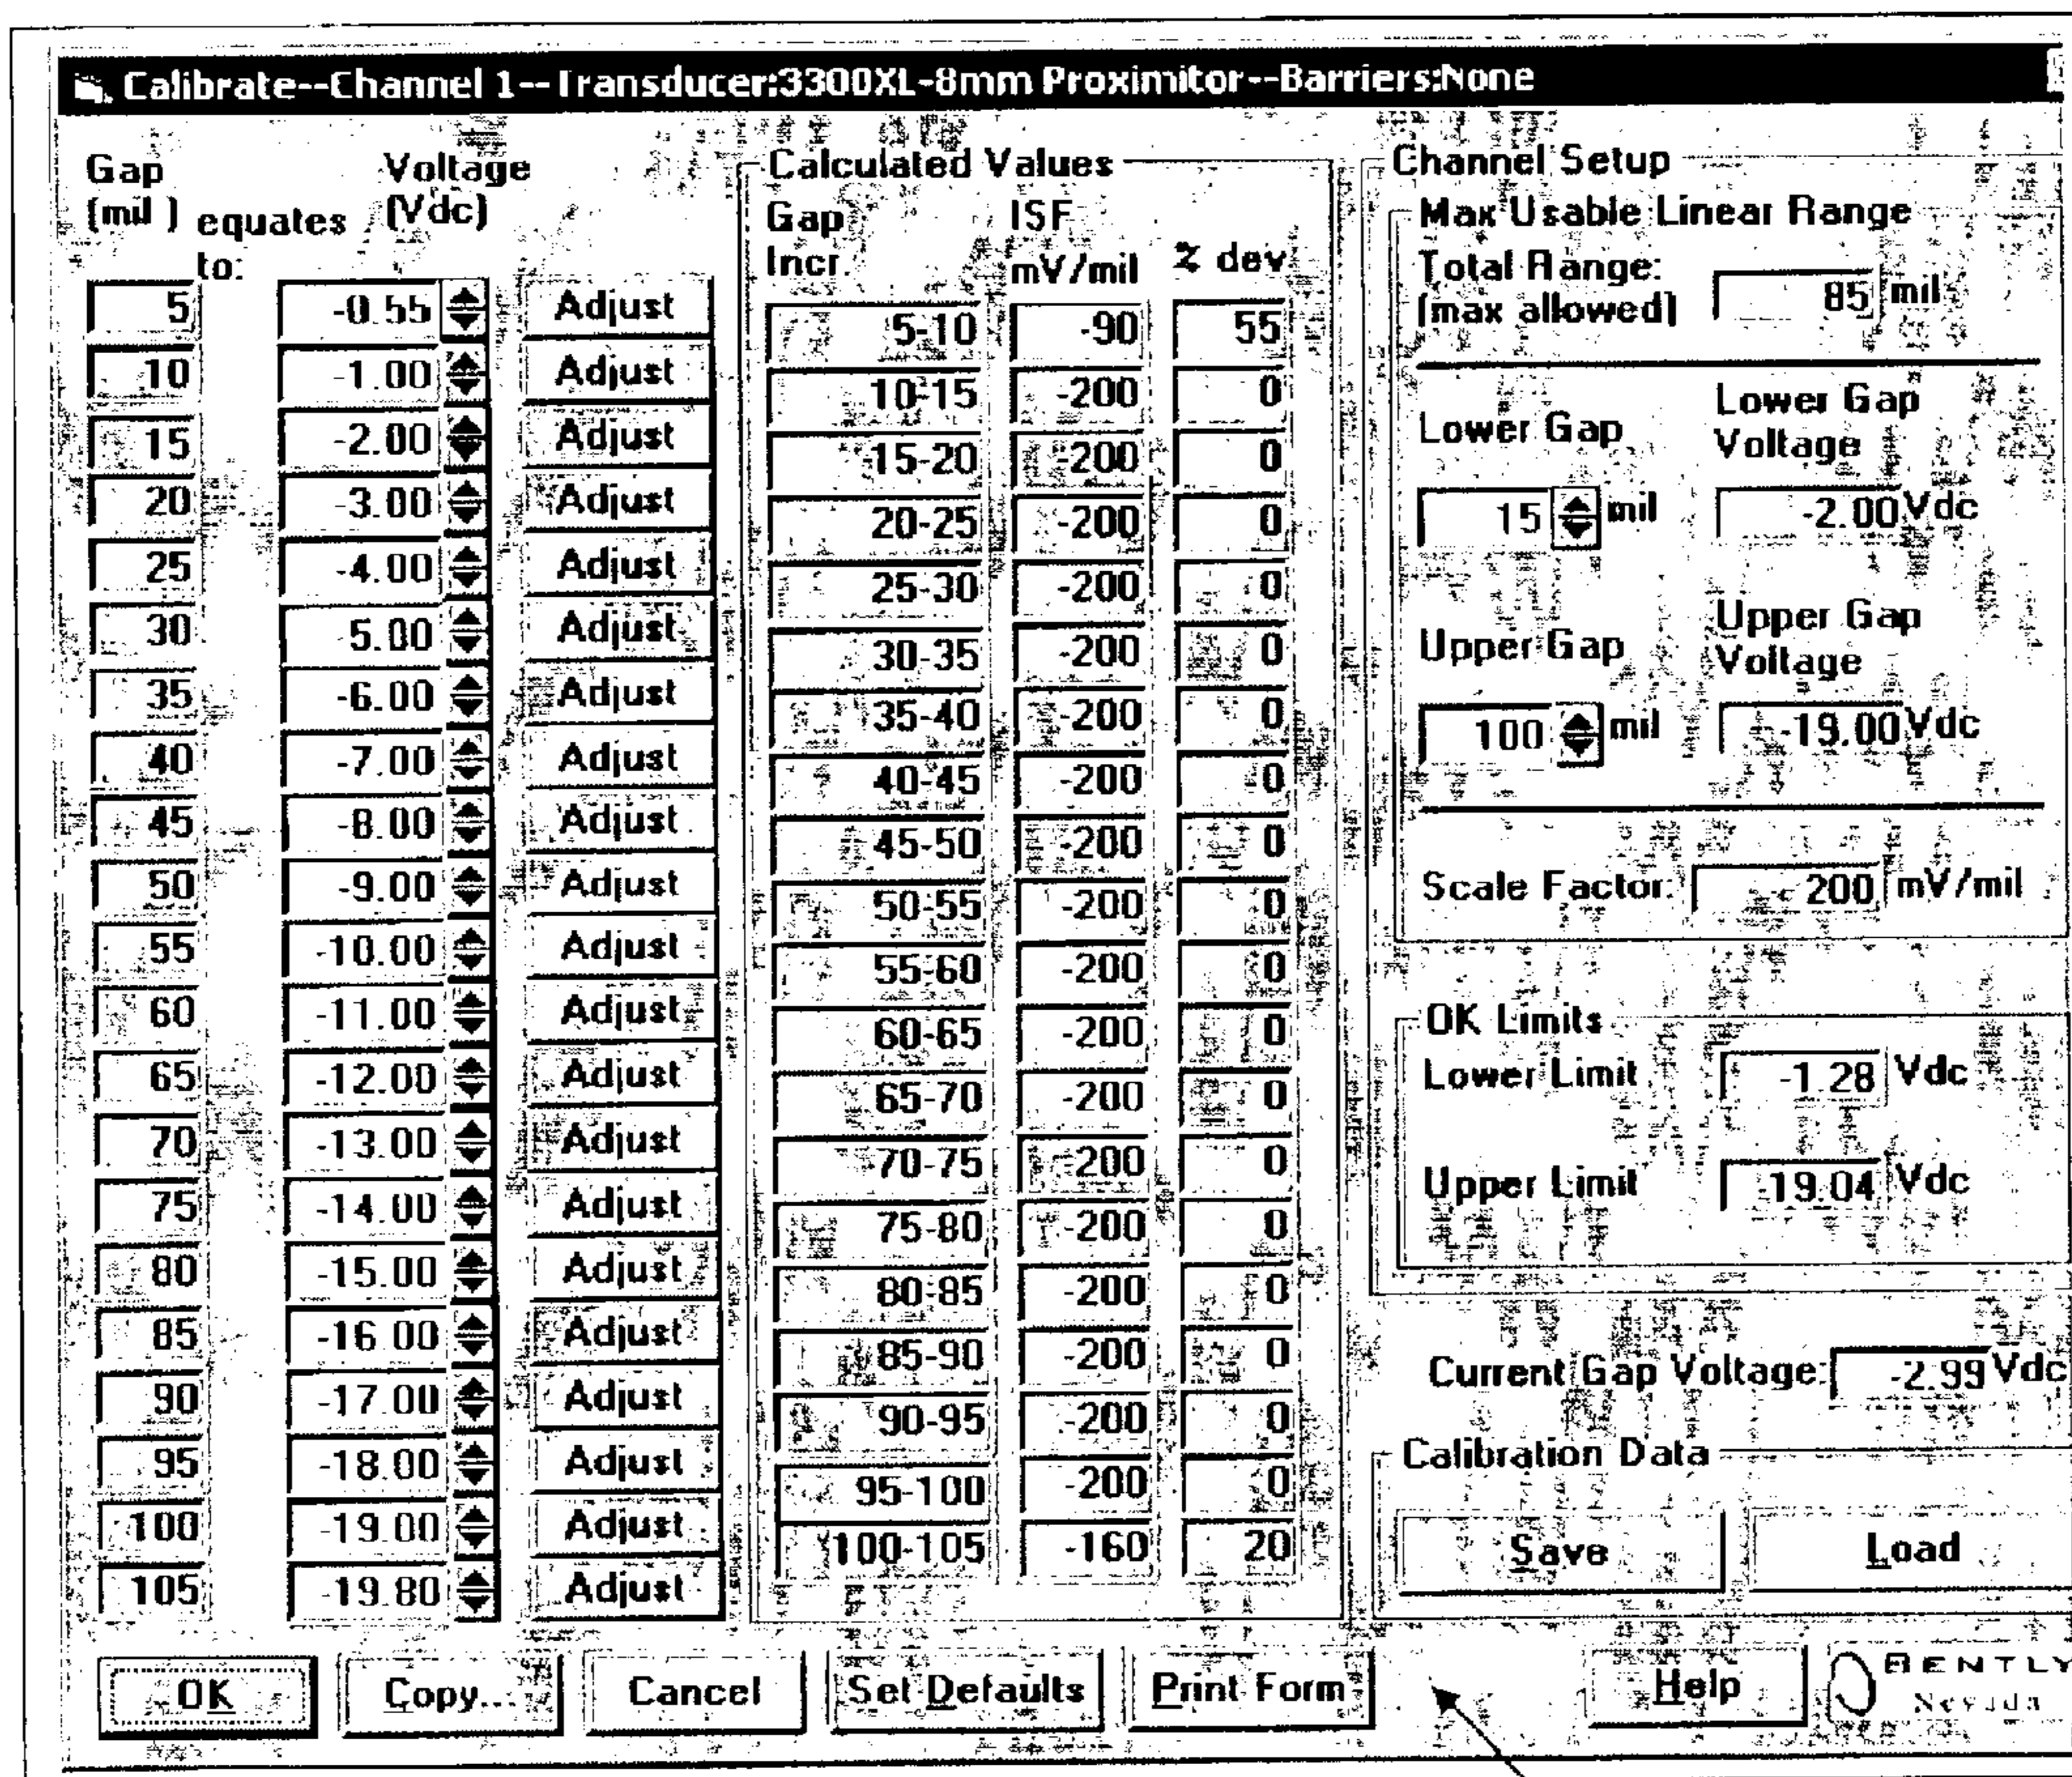 Calibrate--Channel 1--Transducer:3300XL-8mm Proximitor--Barriers:None
Gap (mil ) equates to: Voltage (Vdc)
5 -0.55 Adjust
10 -1.00 Adjust
15 -2.00 Adjust
20 -3.00 Adjust
25 -4.00 Adjust
30 5.00 Adjust
35 -6.00 Adjust
40 -7.00 Adjust
45 -8.00 Adjust
50 -9.00 Adjust
55 -10.00 Adjust
60 -11.00 Adjust
65 -12.00 Adjust
70 -13.00 Adjust
75 -14.00 Adjust
80 -15.00 Adjust
85 -16.00 Adjust
90 -17.00 Adjust
95 -18.00 Adjust
100 -19.00 Adjust
105 -19.80 Adjust
Calculated Values
Gap Incr. ISF mV/mil % dev
5-10 -90 55
10-15 -200 0
15-20 -200 0
20-25 -200 0
25-30 -200 0
30-35 -200 0
35-40 -200 0
40-45 -200 0
45-50 -200 0
50-55 -200 0
55-60 -200 0
60-65 -200 0
65-70 -200 0
70-75 -200 0
75-80 -200 0
80-85 -200 0
85-90 -200 0
90-95 -200 0
95-100 -200 0
100-105 -160 20
Channel Setup
Max Usable Linear Range
Total Range: (max allowed) 85 mil
Lower Gap Lower Gap Voltage
15 mil -2.00 Vdc
Upper Gap Upper Gap Voltage
100 mil -19.00 Vdc
Scale Factor: 200 mV/mil
OK Limits
Lower Limit -1.28 Vdc
Upper Limit -19.04 Vdc
Current Gap Voltage: -2.99 Vdc
Calibration Data
Save Load
OK Copy... Cancel Set Defaults Print Form Help
BENTLY
Nevada